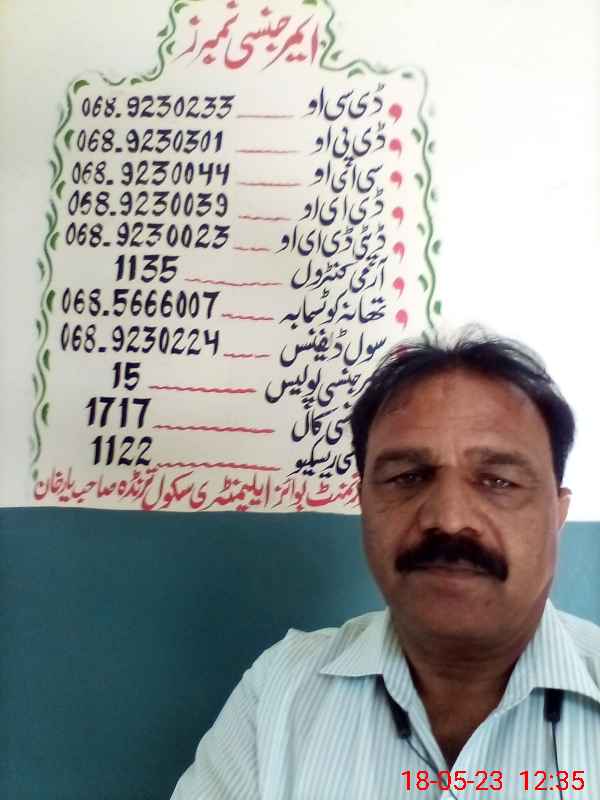 ایمرجنسی نمبرز
ڈی سی او ـــــ 068.9230233
ڈی پی او ـــــ 068.9230301
سی ای او ـــــ 068.9230044
ڈی ای او ـــــ 068.9230039
ڈپٹی ڈی ای او ـــــ 068.9230023
آرمی کنٹرول ـــــ 1135
تھانہ کوٹسمابہ ـــــ 068.5666007
سول ڈیفنس ـــــ 068.9230224
پولیس ـــــ 15
کال ـــــ 1717
ریسکیو ـــــ 1122
بوائز ایلیمنٹری سکول ترنڈہ صاحب یار خان
18-05-23 12:35